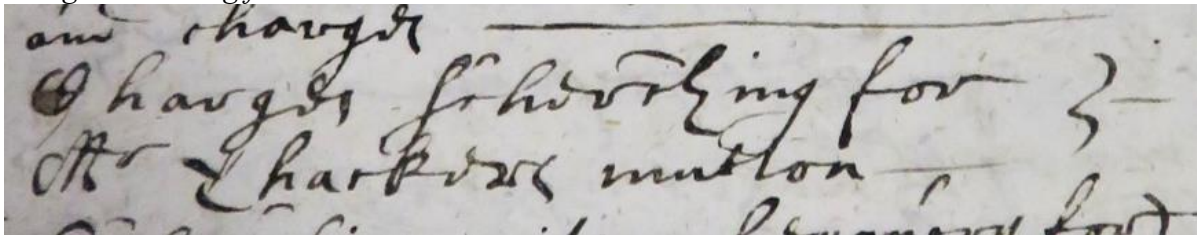 and charges
Charges scherching for
Mr Thackers mutton
for